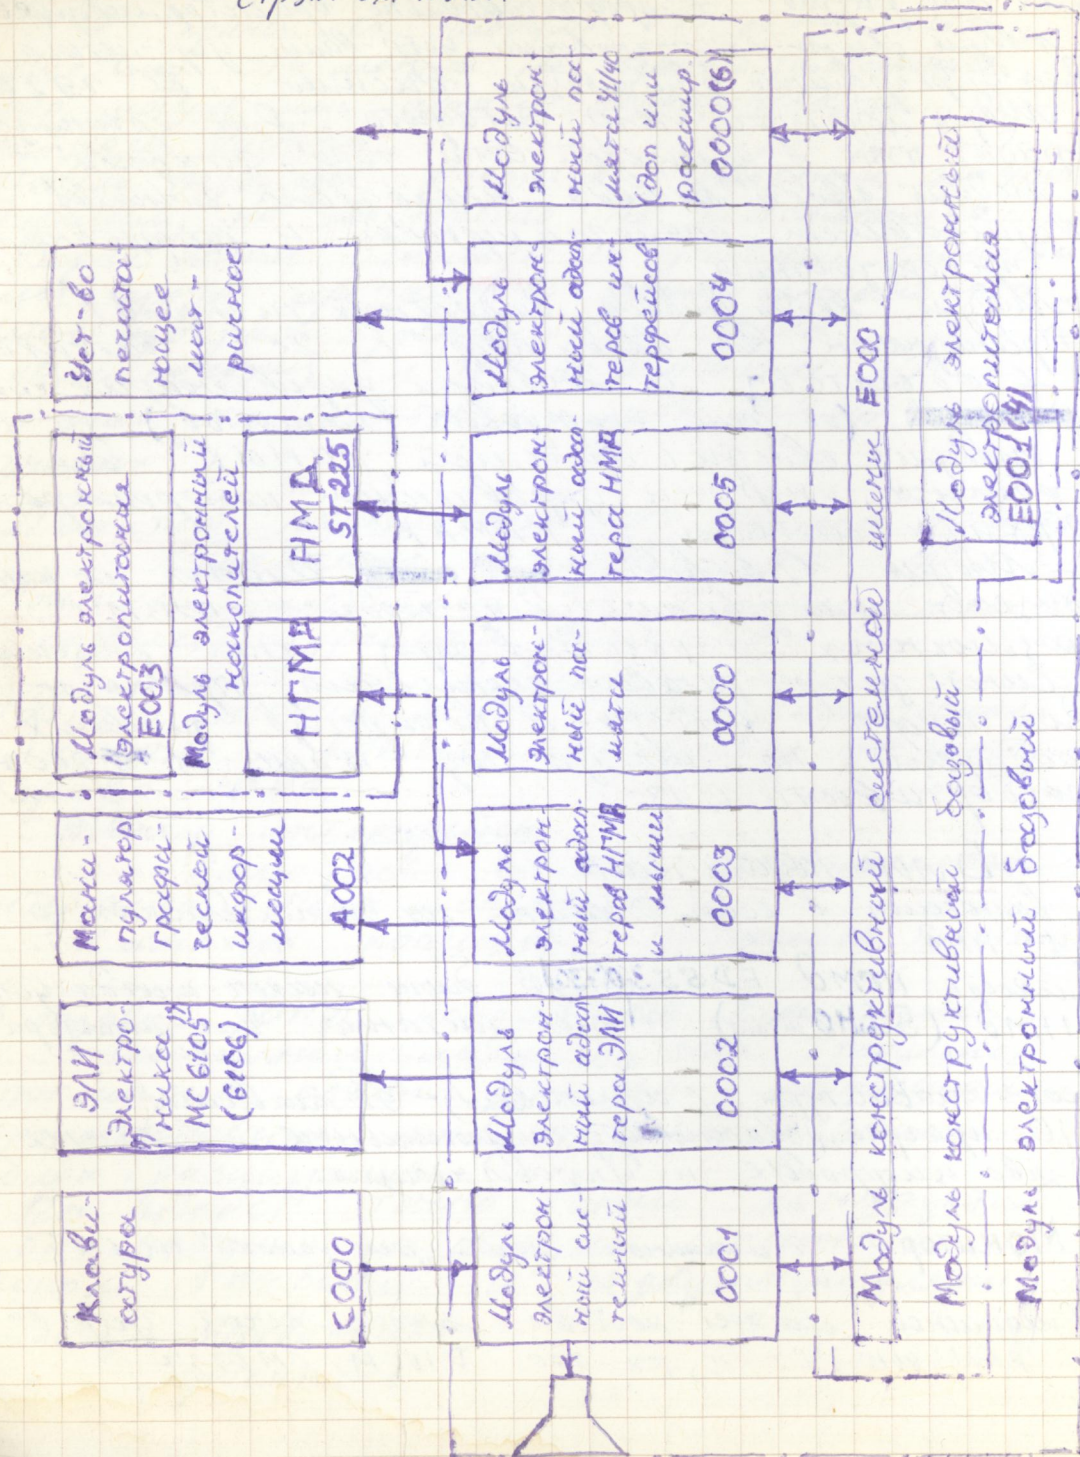 Клави-
атура
С000
ЭЛИ
"Электро-
ника"
МС6105
(6106)
Мани-
пулятор
графи-
ческой
инфор-
мации
А002
Модуль электронный
электропитания
Е003
Модуль электронный
накопителей
НГМД
НМД
ST225
Уст-во
печата-
ющее
мат-
ричное
Модуль
электрон-
ный сис-
темный
0001
Модуль
электрон-
ный адап
тера ЭЛИ
0002
Модуль
электрон-
ный адап-
теров НГМД
и мыши
0003
Модуль
электрон-
ный па-
мяти
0000
Модуль
электрон-
ный адап-
тера НМД
0005
Модуль
электрон-
ный адап-
теров ин-
терфейсов
0004
Модуль
электрон-
ный па-
мяти
(доп или
расшир)
0000(6)
Модуль конструктивный системной шины Е000
Модуль конструктивный базовый
Модуль электронный базовый
Модуль электронный
электропитания
Е001(4)